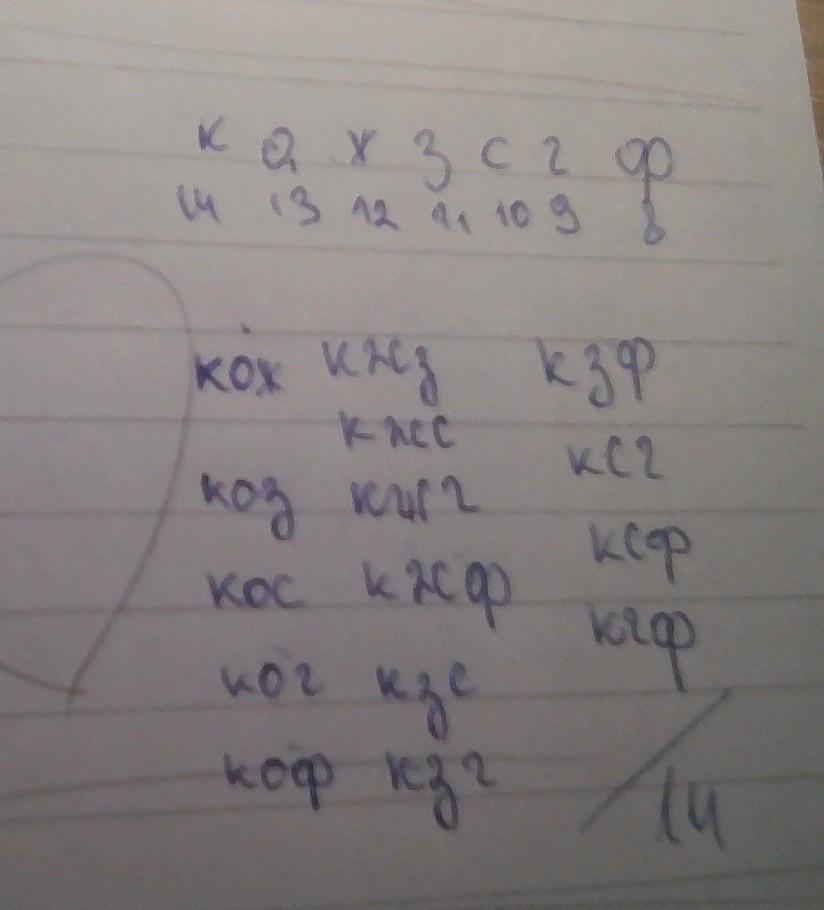 к о ж з с г ф
14 13 12 11 10 9 8
кож кжз кзф
кжс ксг
коз кжг
ксф
кос кжф
кгф
ког кзс
коф кзг
/14